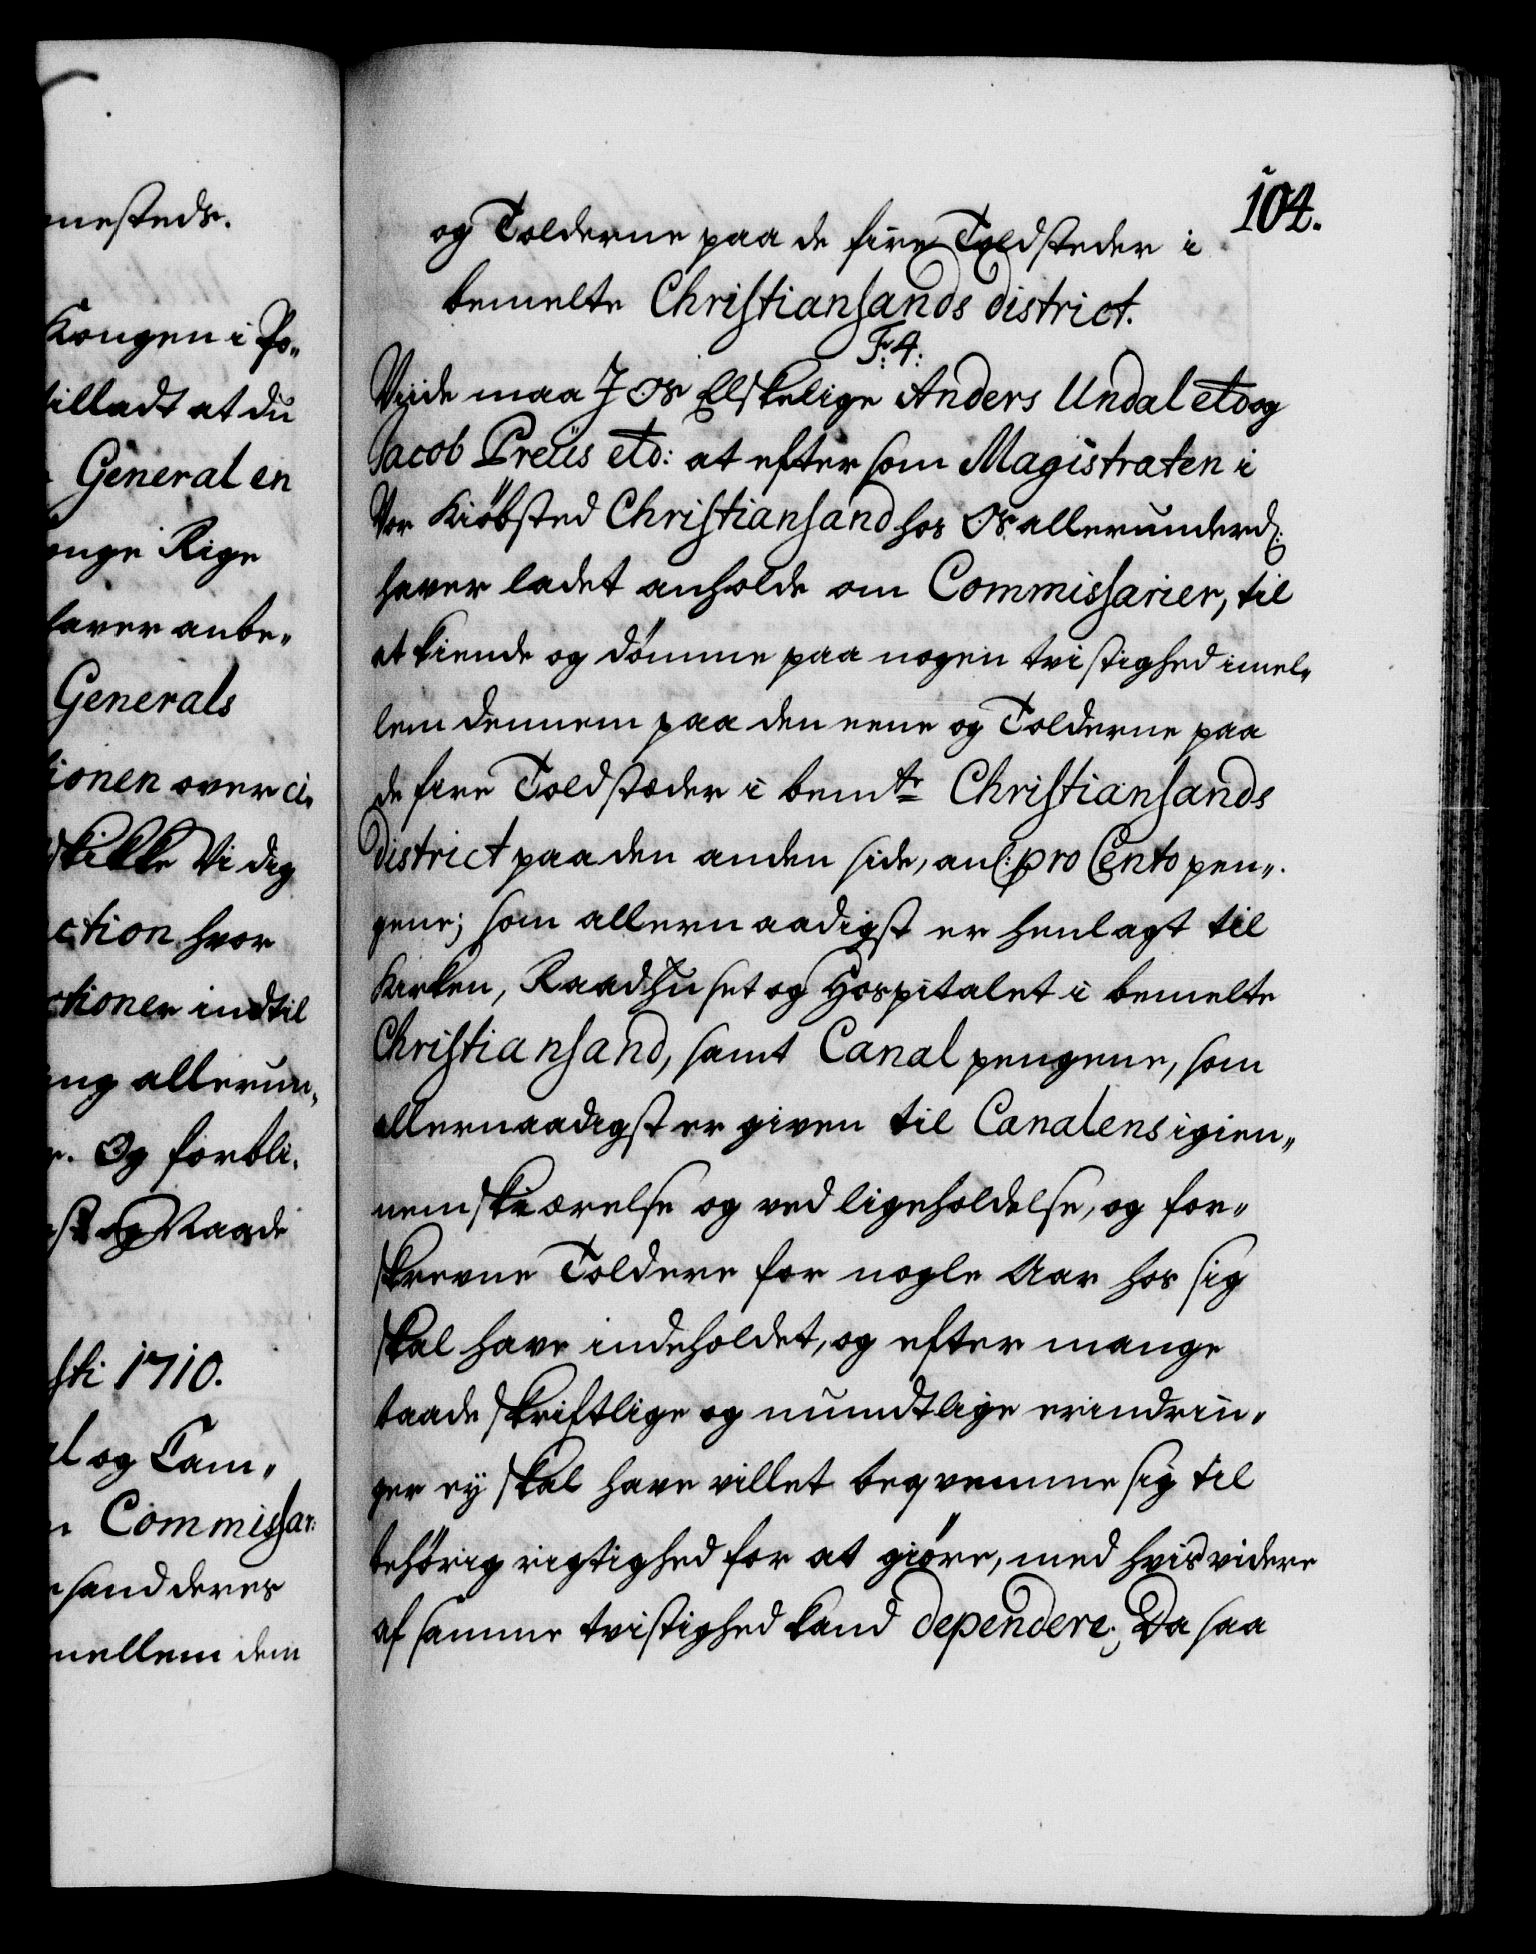 nesteds.
Kongen i Po„
tilladt at du
General en
onge Rige
haver anbe„
Generals
tionen over ci„
skikke Vi dig
ction hvor
ctioner indtil
ing allerun„
Og forbli„
og Naade
sti 1710.
og Cam„
Commissar:
sand deres
mellem dem
104.
og Tolderne paa de fire Toldsteder i
bemelte Christiansands district.
F: 4:
Vijde maa J Os Elskelige Anders Undal etc og
Jacob Preüs etc: at efter som Magistraten i
Vor Kiöbsted Christiansand hos Os allerunderd:
haver ladet anholde om Commissarier, til
at kiende og dömme paa nogen tvistighed imel„
lem dennem paa den eene og Tolderne paa
de fire Toldstæder i bemte Christiansands
district paa den anden side, anl: pro Cento pen„
gene; som allernaadigst er henlagt til
Kirken, Raadhuset og Hospitalet i bemelte
Christiansand, samt Canal pengene, som
allernaadigst er given til Canalens igien„
nemskiærelse og ved ligeholdelse, og for„
skrevne Toldere for nogle Aar hos sig
skal have indeholdet, og efter mange
baade skriftlige og mundtlige erindrin„
ger ey skal have villet beqvemme sig til
behörig rigtighed for at giöre, med hvis videre
af samme tvistighed kand dependere; Da saa